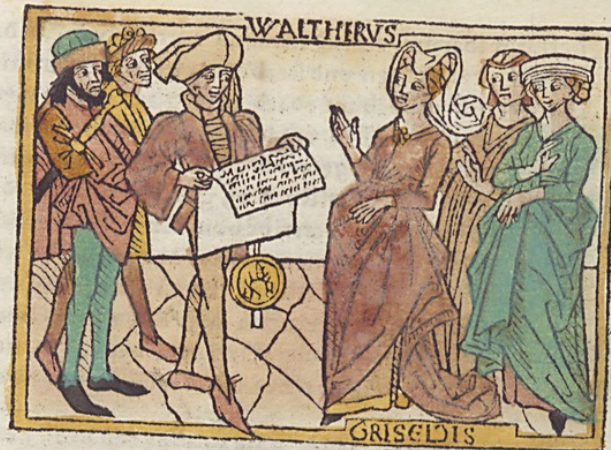 WALTHERVS
GRISELDIS